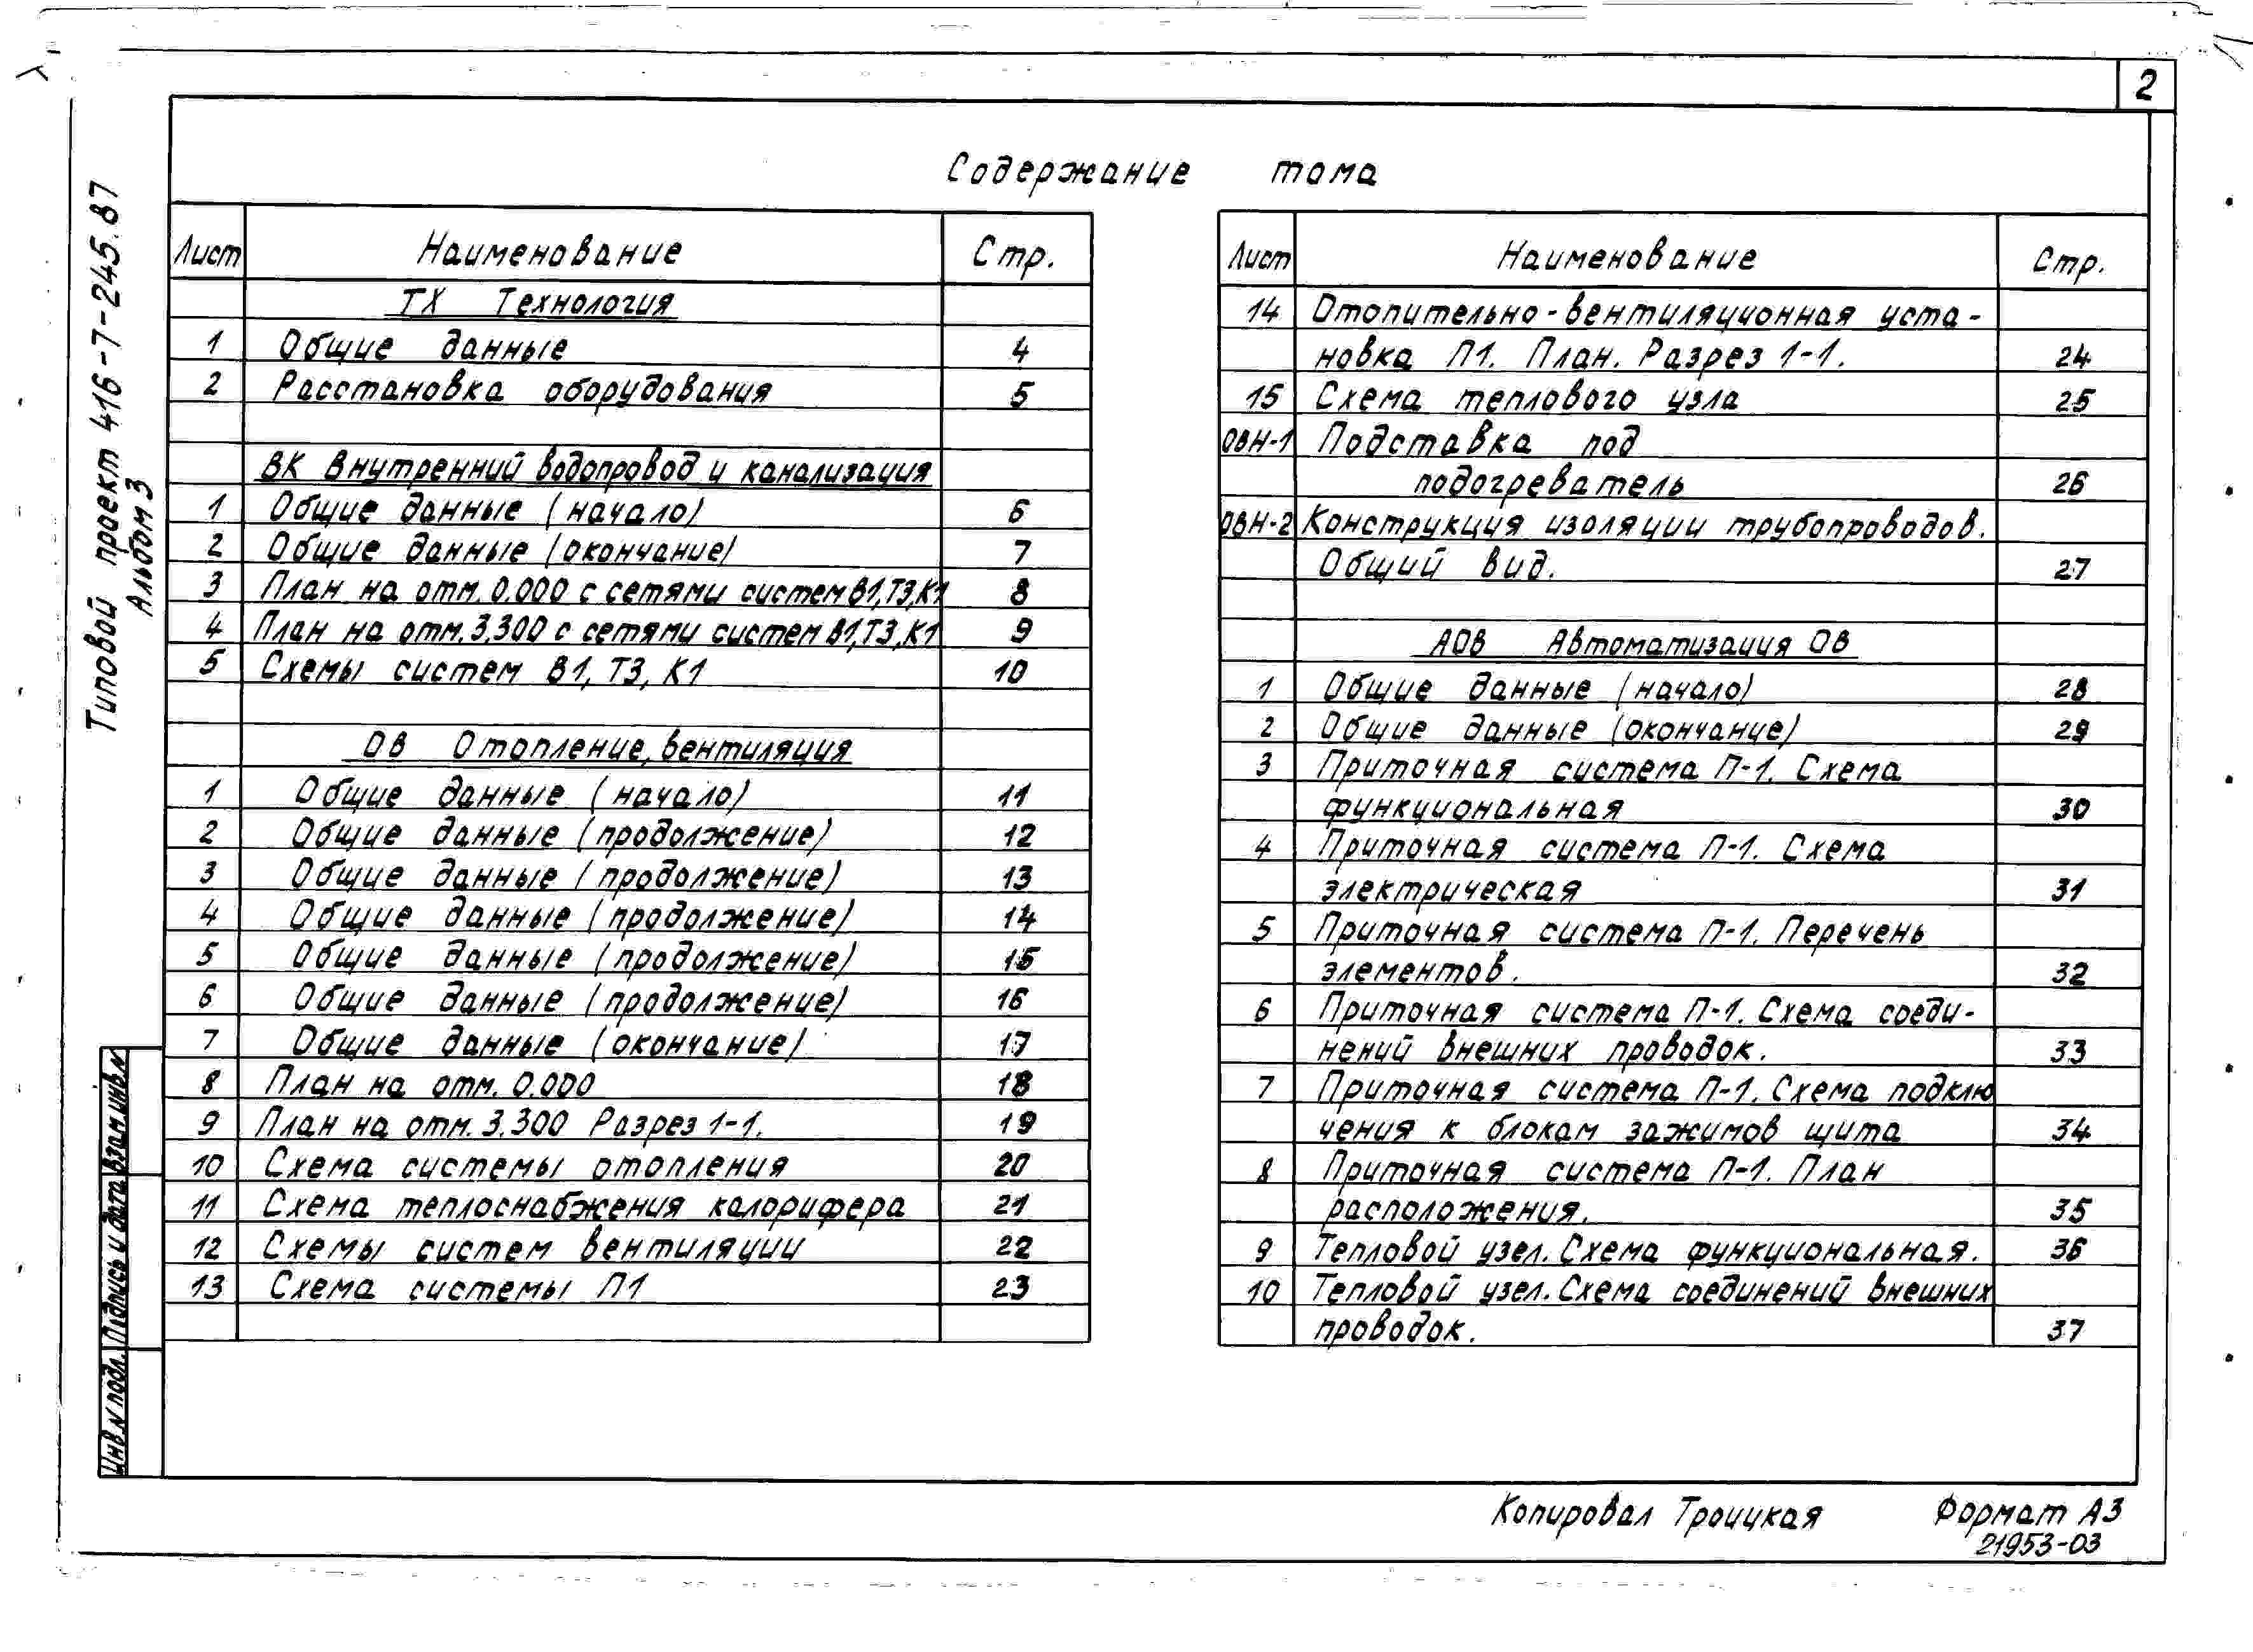 2
Содержание тома
Типовой проект 416-7-245.87
Альбом 3
Лист Наименование Стр.
ТХ Технология
1 Общие данные 4
2 Расстановка оборудования 5
ВК Внутренний водопровод и канализация
1 Общие данные (начало) 6
2 Общие данные (окончание) 7
3 План на отм. 0.000 с сетями систем В1,Т3,К1 8
4 План на отм. 3.300 с сетями систем В1,Т3,К1 9
5 Схемы систем В1, Т3, К1 10
ОВ Отопление, вентиляция
1 Общие данные (начало) 11
2 Общие данные (продолжение) 12
3 Общие данные (продолжение) 13
4 Общие данные (продолжение) 14
5 Общие данные (продолжение) 15
6 Общие данные (продолжение) 16
7 Общие данные (окончание) 17
8 План на отм. 0.000 18
9 План на отм. 3.300 Разрез 1-1. 19
10 Схема системы отопления 20
11 Схема теплоснабжения калорифера 21
12 Схемы систем вентиляции 22
13 Схема системы П1 23
Лист Наименование Стр.
14 Отопительно-вентиляционная уста-
новка П1. План. Разрез 1-1. 24
15 Схема теплового узла 25
ОВН-1 Подставка под
подогреватель 26
ОВН-2 Конструкция изоляции трубопроводов.
Общий вид. 27
АОВ Автоматизация ОВ
1 Общие данные (начало) 28
2 Общие данные (окончание) 29
3 Приточная система П-1. Схема
функциональная 30
4 Приточная система П-1. Схема
электрическая 31
5 Приточная система П-1. Перечень
элементов. 32
6 Приточная система П-1. Схема соеди-
нений внешних проводок. 33
7 Приточная система П-1. Схема подклю
чения к блокам зажимов щита 34
8 Приточная система П-1. План
расположения. 35
9 Тепловой узел. Схема функциональная. 36
10 Тепловой узел. Схема соединений внешних
проводок. 37
Инв.N подл. Подпись и дата Взам.инв.N
Копировал Троицкая Формат А3
21953-03